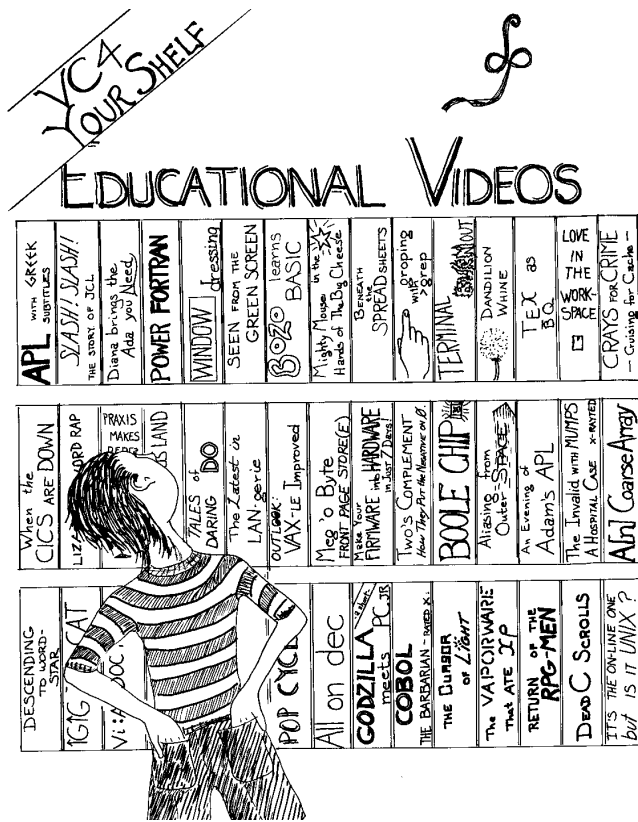 VC4
YOUR SHELF
EDUCATIONAL VIDEOS
APL WITH GREEK
SUBTITLES
SLASH! SLASH!
THE STORY OF JCL
Diana brings the
Ada you Need
POWER FORTRAN
WINDOW dressing
SEEN FROM THE
GREEN SCREEN
BOZO learns
BASIC
Mighty Mouse in the
Hands of The Big Cheese
BENEATH
the
SPREADSHEETS
groping
with
>grep
TERMINAL
DANDILION
WHINE
TEX as
BQ
LOVE
IN
THE
WORK-
SPACE
CRAYS FOR CRIME
- Cruising for Cache -
When the
CICS ARE DOWN
LIZA ORD RAP
PRAXIS
MAKES
ISLAND
TALES of
DARING DO
The Latest in
LAN-gerie
OUTLOOK:
VAX-LE Improved
Meg 'o Byte
FRONT PAGE STORE(E)
Make Your
FIRMWARE into HARDWARE
in Just 7 Days!
Two's COMPLEMENT
How They Put the Negative on Ø.
BOOLE CHIP
Aliasing from
Outer SPACE
An Evening of
Adam's APL
The Invalid WITH MUMPS
A HOSPITAL CASE X-RATED
A[n] Coarse Array
DESCENDING
TO WORD-
STAR
1G1G CAT
Vi:A DOC
POP CYCL
All on dec
GODZILLA
meets PC JR
COBOL
THE BARBARIAN - RATED X.
THE CURSOR
OF LIGHT
The VAPORWARE
That ATE XP
RETURN OF THE
RPG-MEN
DEAD C SCROLLS
IT'S THE ON-LINE ONE
but IS IT UNIX ?